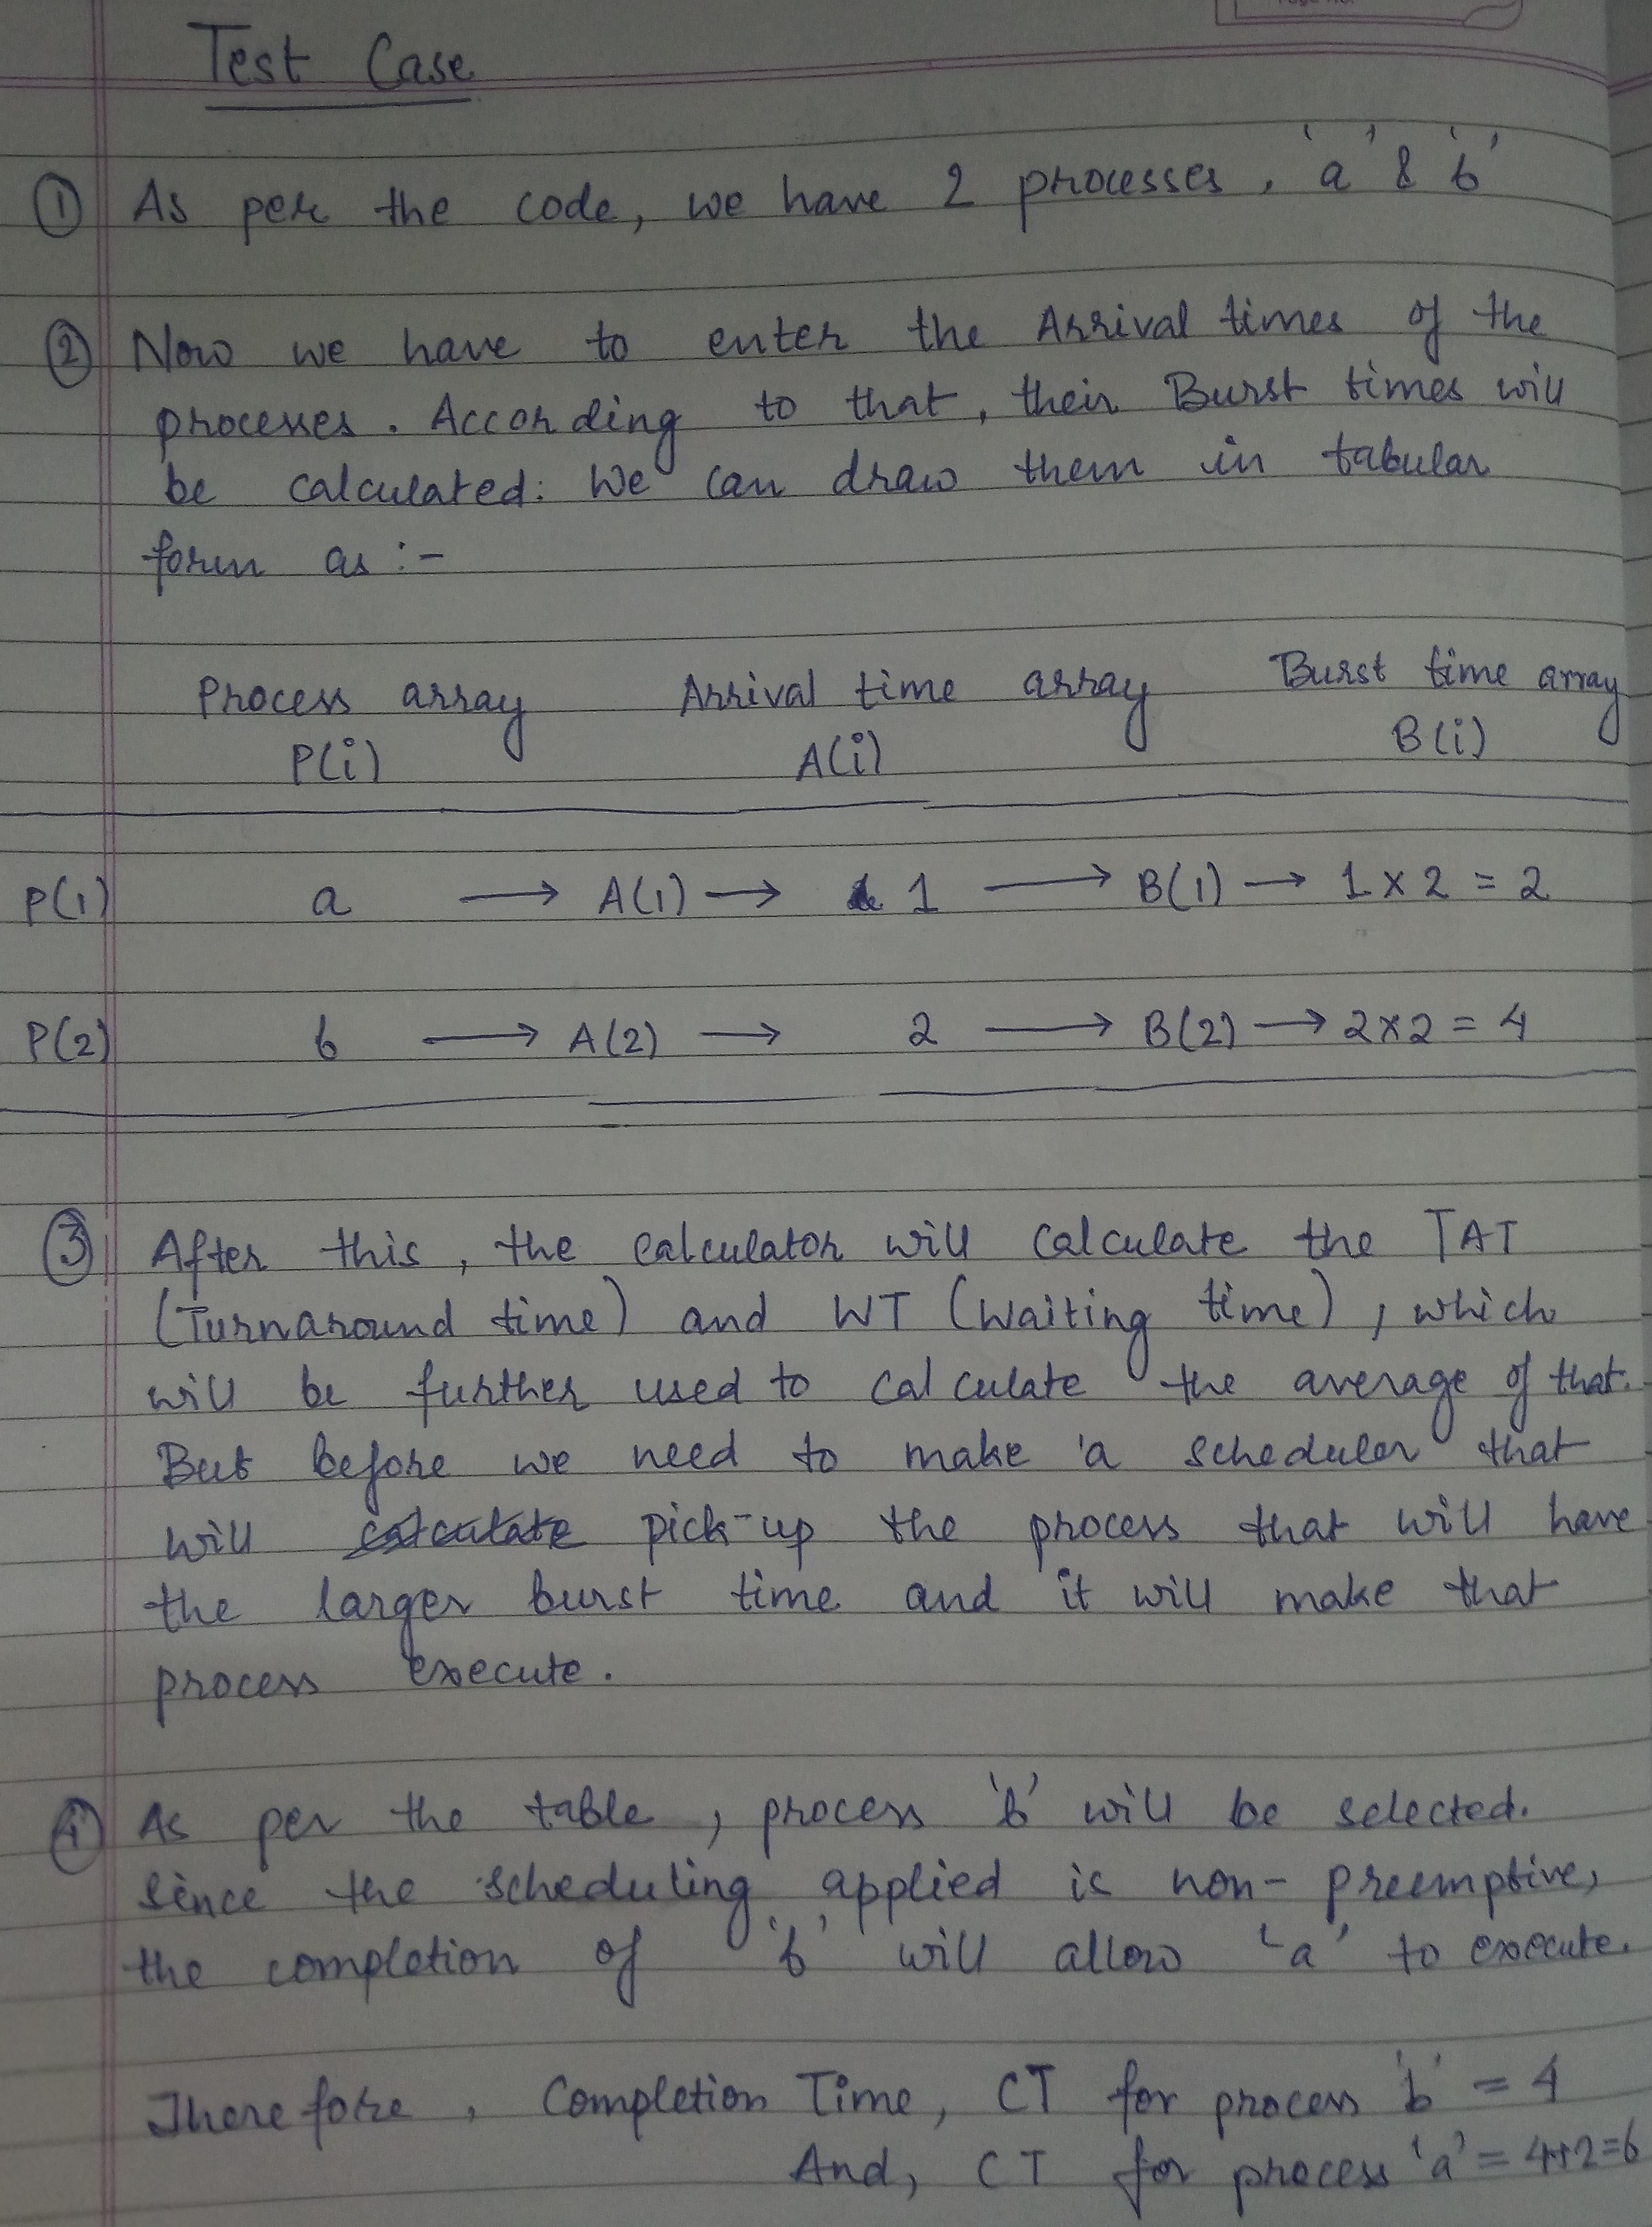 Test Case
① As per the code, we have 2 processes, 'a' & 'b'
② Now we have to enter the Arrival times of the
processes. According to that, their Burst times will
be calculated. We can draw them in tabular
form as :-
Process array Arrival time array Burst time array
P(i) A(i) B(i)
P(1) a → A(1) → 1 → B(1) → 1 x 2 = 2
P(2) b → A(2) → 2 → B(2) → 2 x 2 = 4
③ After this, the calculator will calculate the TAT
(Turnaround time) and WT (Waiting time), which
will be further used to calculate the average of that.
But before we need to make a scheduler that
will calculate pick-up the process that will have
the larger burst time and it will make that
process execute.
④ As per the table, process 'b' will be selected.
Since the scheduling applied is non-preemptive,
the completion of 'b' will allow 'a' to execute.
Therefore, Completion Time, CT for process 'b' = 4
And, CT for process 'a' = 4+2=6